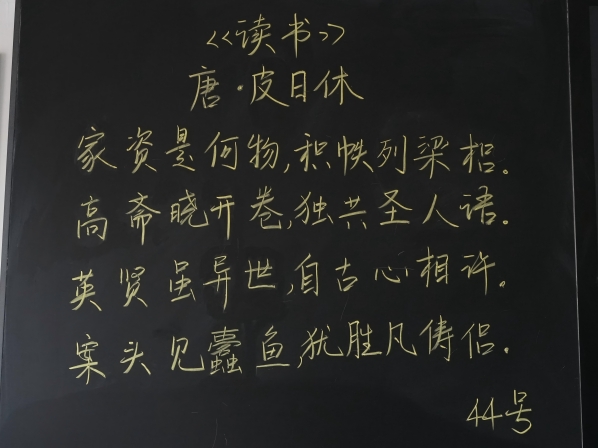 《读书》
唐·皮日休
家资是何物,积帙列梁梠。
高斋晓开卷,独共圣人语.
英贤虽异世,自古心相许.
案头见蠹鱼,犹胜凡俦侣.
44号